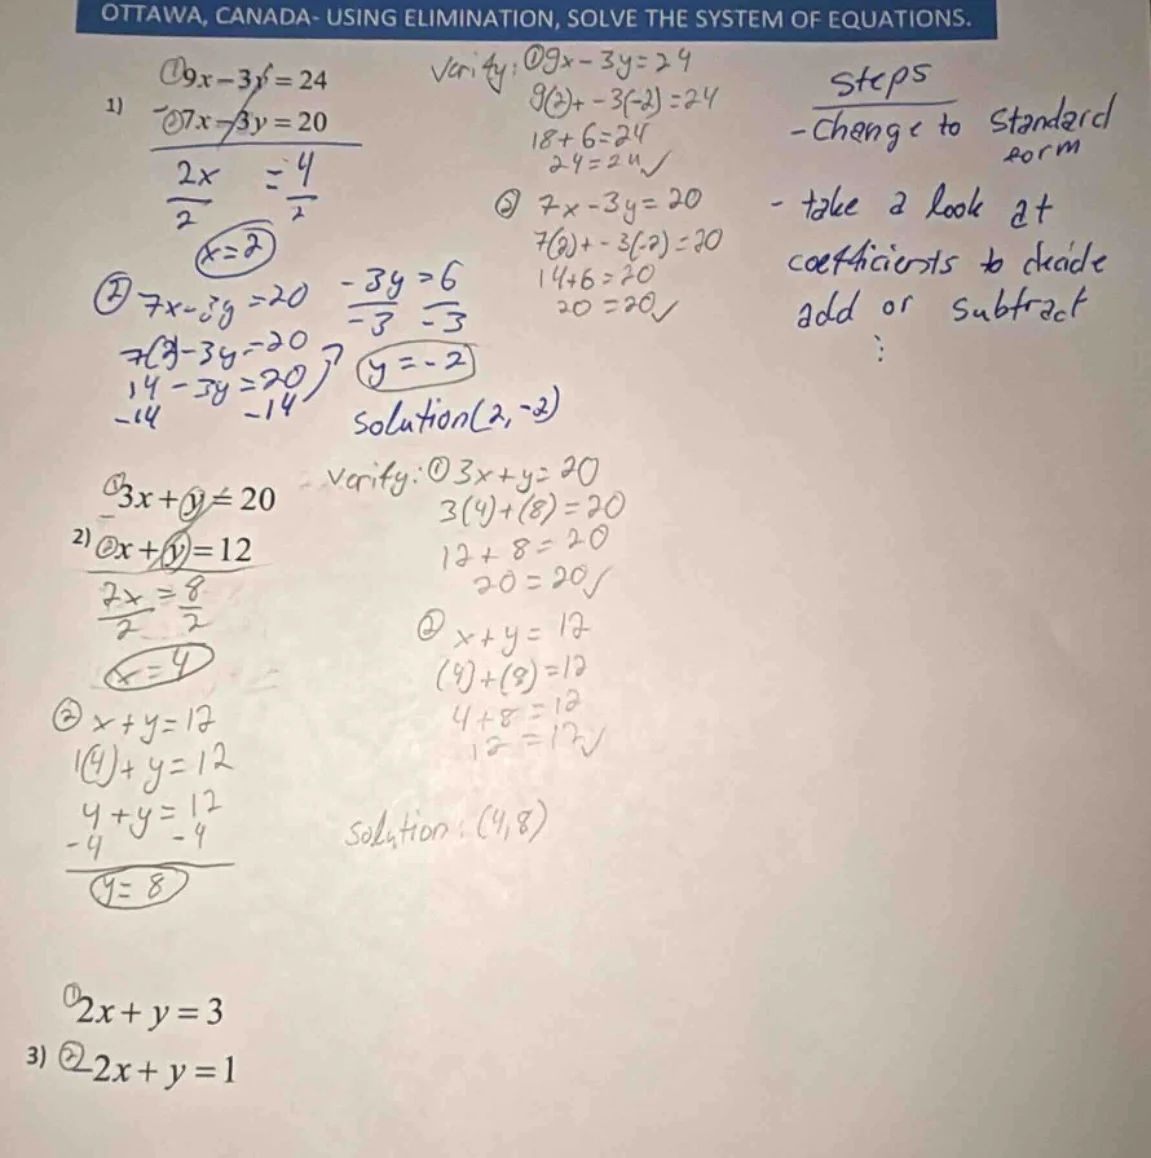 OTTAWA, CANADA- USING ELIMINATION, SOLVE THE SYSTEM OF EQUATIONS.
1)
① 9x − 3y = 24
− ② 7x − 3y = 20
2x = 4
2 2
x = 2
② 7x - 3y = 20
7(2) - 3y = 20
14 - 3y = 20
-14 -14
-3y = 6
-3 -3
y = -2
Solution (2, -2)
Verify: ① 9x - 3y = 24
9(2) + -3(-2) = 24
18 + 6 = 24
24 = 24 ✓
② 7x - 3y = 20
7(2) + -3(-2) = 20
14 + 6 = 20
20 = 20 ✓
Steps
- Change to Standard
form
- take a look at
coefficients to decide
add or subtract
⋮
2)
① 3x + y = 20
− ② x + y = 12
2x = 8
2 2
x = 4
② x + y = 12
1(4) + y = 12
4 + y = 12
-4 -4
y = 8
Verify: ① 3x + y = 20
3(4) + (8) = 20
12 + 8 = 20
20 = 20 ✓
② x + y = 12
(4) + (8) = 12
4 + 8 = 12
12 = 12 ✓
Solution: (4, 8)
3)
① 2x + y = 3
② -2x + y = 1